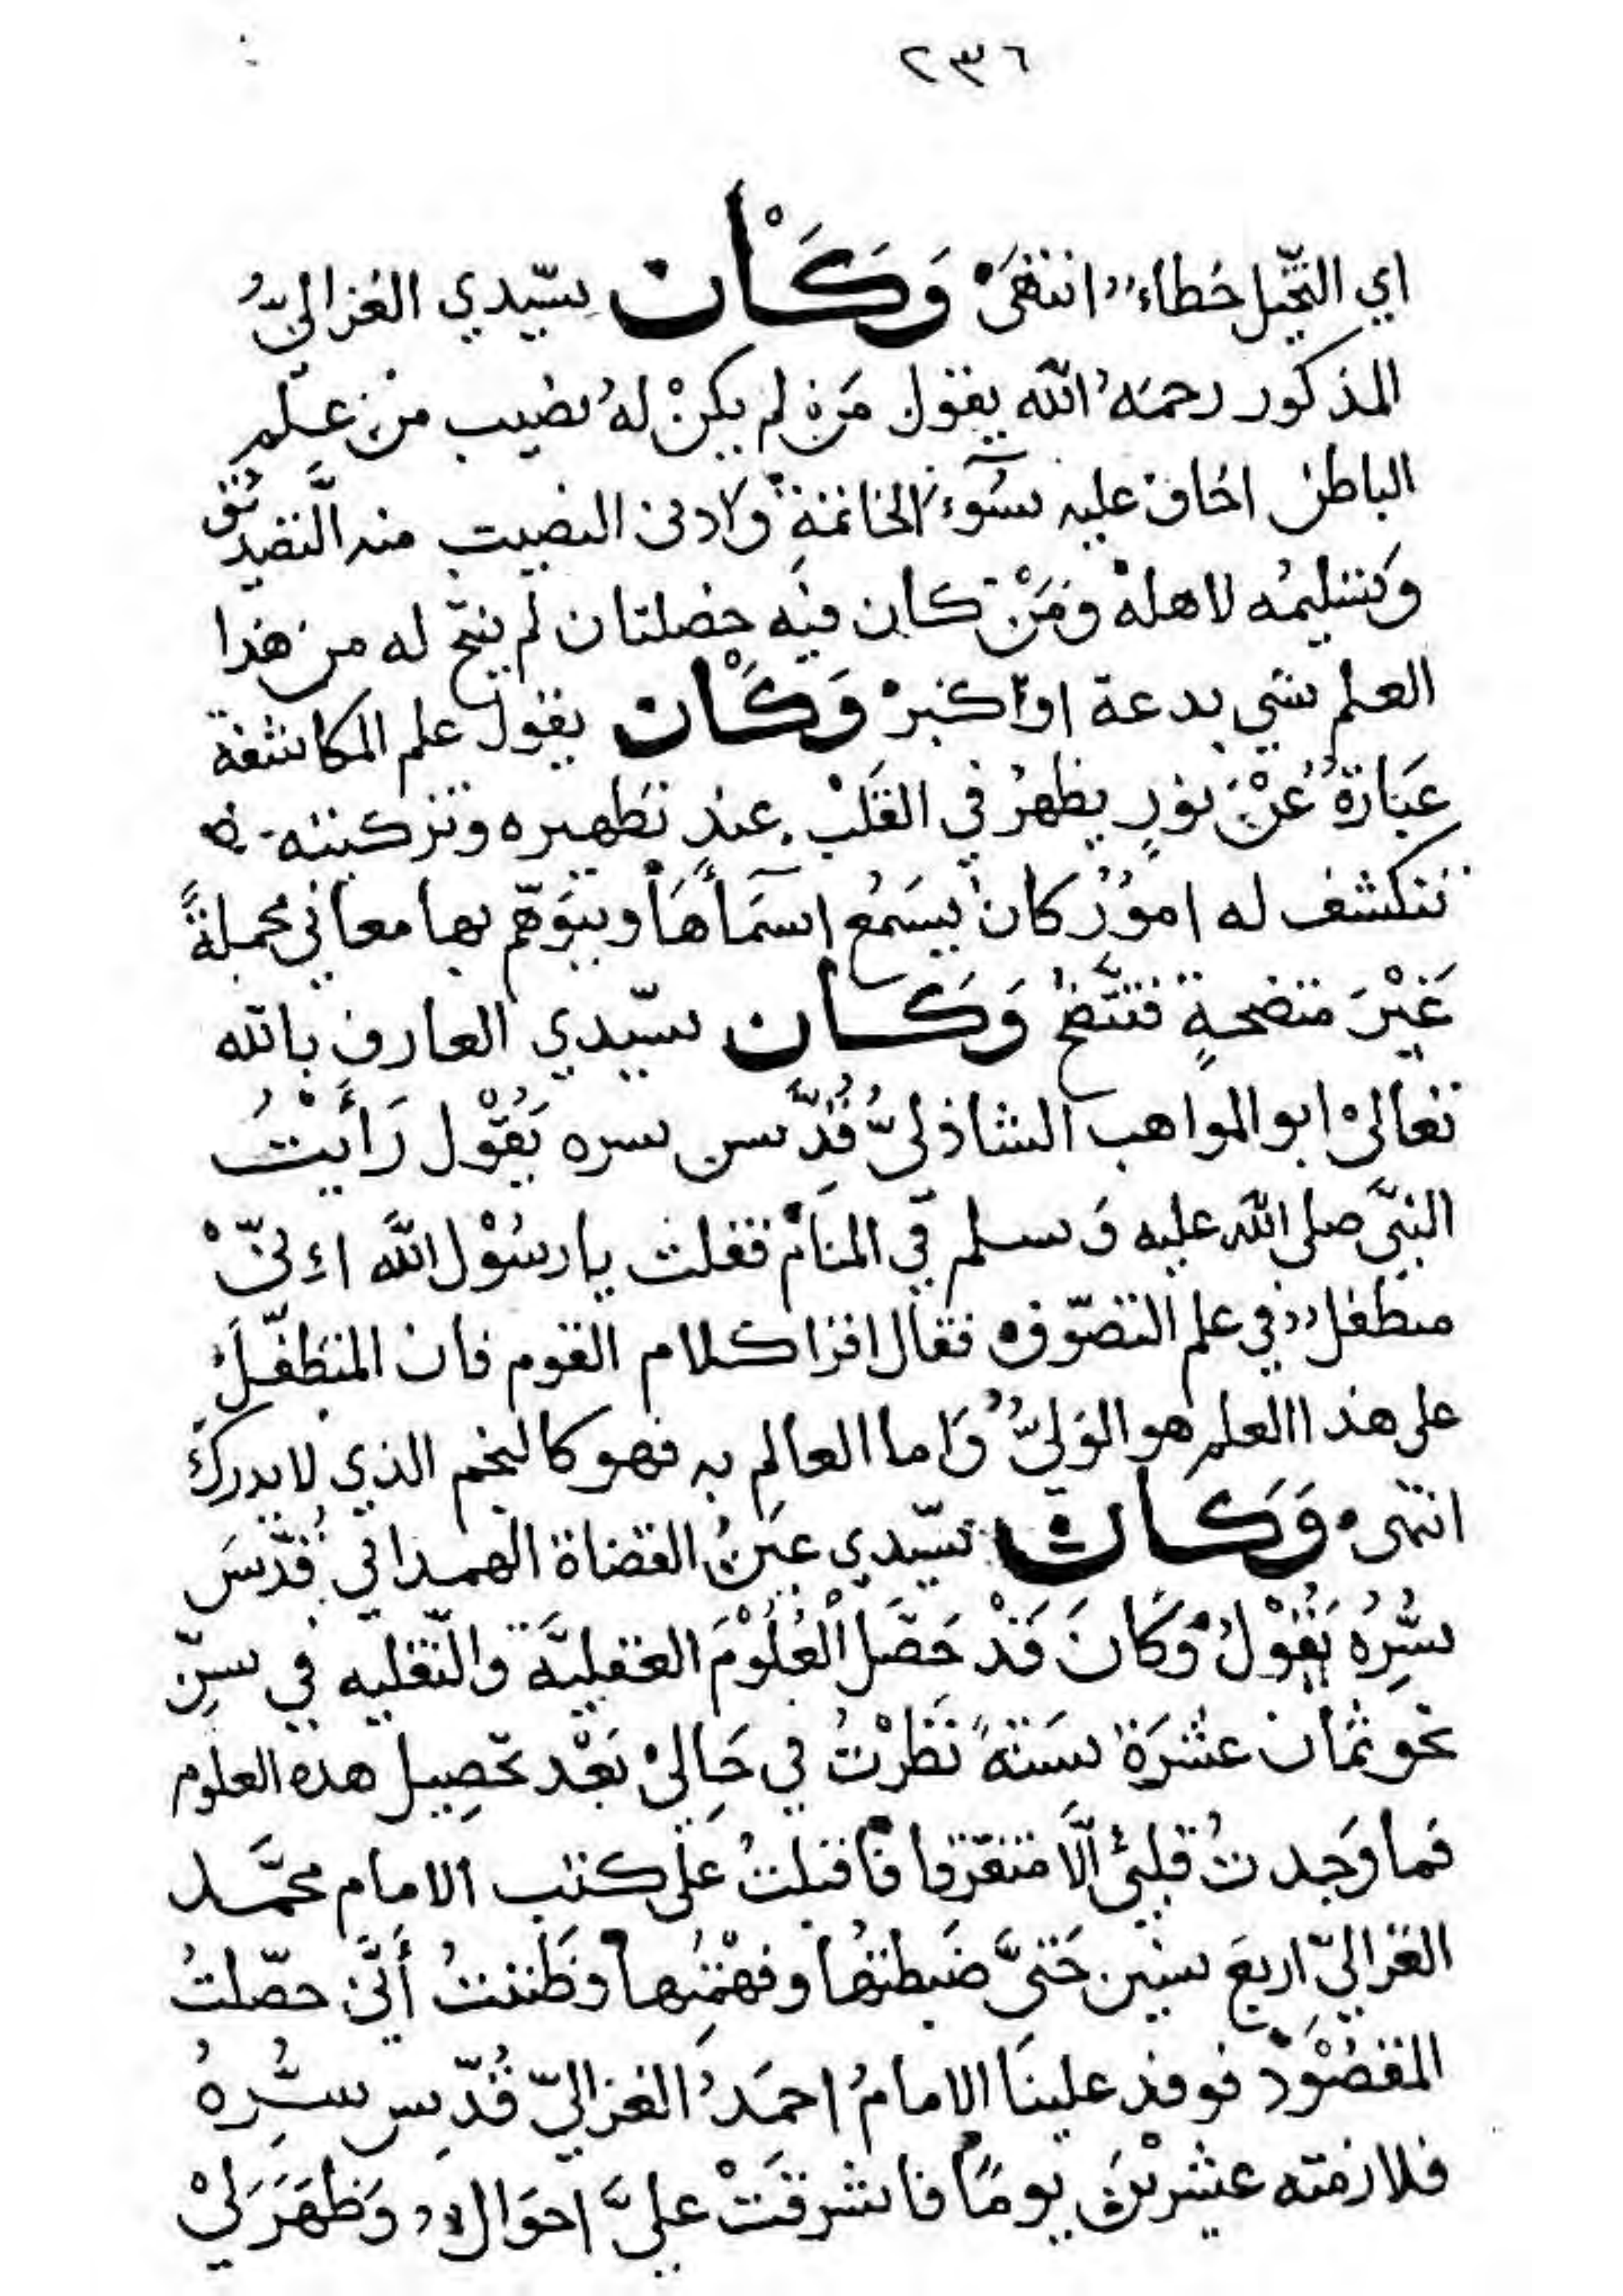 ٢٣٦
اي التخيل خطاء انتهى وَكَان سيّدي الغزاليّ
المذكور رحمه الله يقول من لم يكن له نصيب من علم
الباطن اخاف عليه سوء الخاتمة وادنى النصيب منه التصديق
وتسليمه لاهله ومن كان فيه خصلتان لم يفتح له من هذا
العلم شي بدعة او كبر وَكَان يقول علم المكاشفة
عبارة عن نور يظهر في القلب عند تطهيره وتزكيته
تنكشف له امور كان يسمع اسمآها ويتوهّم بها معاني مجملةً
غَيْرَ متضحةٍ فتتّضح وَكَان سيّدي العارف بالله
تعالى ابو المواهب الشاذليّ قُدِّس سره يَقُوْل رَأَيْتُ
النبيّ صلى الله عليه وسلم في المنام فقلت يا رسُوْل الله اءنيّ
متطفل في علم التصوّف فقال اقرا كلام القوم فان المتطفّل
على هذا العلم هو الوليّ واما العالم به فهو كالنجم الذي لا يدرك
انتهى وَكَان سيّدي عين القضاة الهمداني قُدّسَ
سُّرِهُ يَقُوْلُ وَكَانَ قَدْ حَصَّل الْعُلُوْمَ العقليَّة والنّقليه في سِنّ
نحو ثمان عشرَة سَنَةً نَظَرْتُ في حَالِيْ بَعْد تحصِيل هذه العلوم
فما وَجدتُ قلبي الَّا متفرّقا فاقبلتُ على كتب الامام محمَّد
الغزاليّ اربعَ سنين حَتىَّ ضَبطتهُا وفهمْتُها وظننتُ أَنّي حصّلتُ
المقصُوْد فوفد علينَا الامامُ احمَدُ الغزاليّ قُدّس سُّرِهُ
فلازمته عشرْين يومًا فاشرقَتْ عليَّ احوَال وَظهَرَ لِيْ